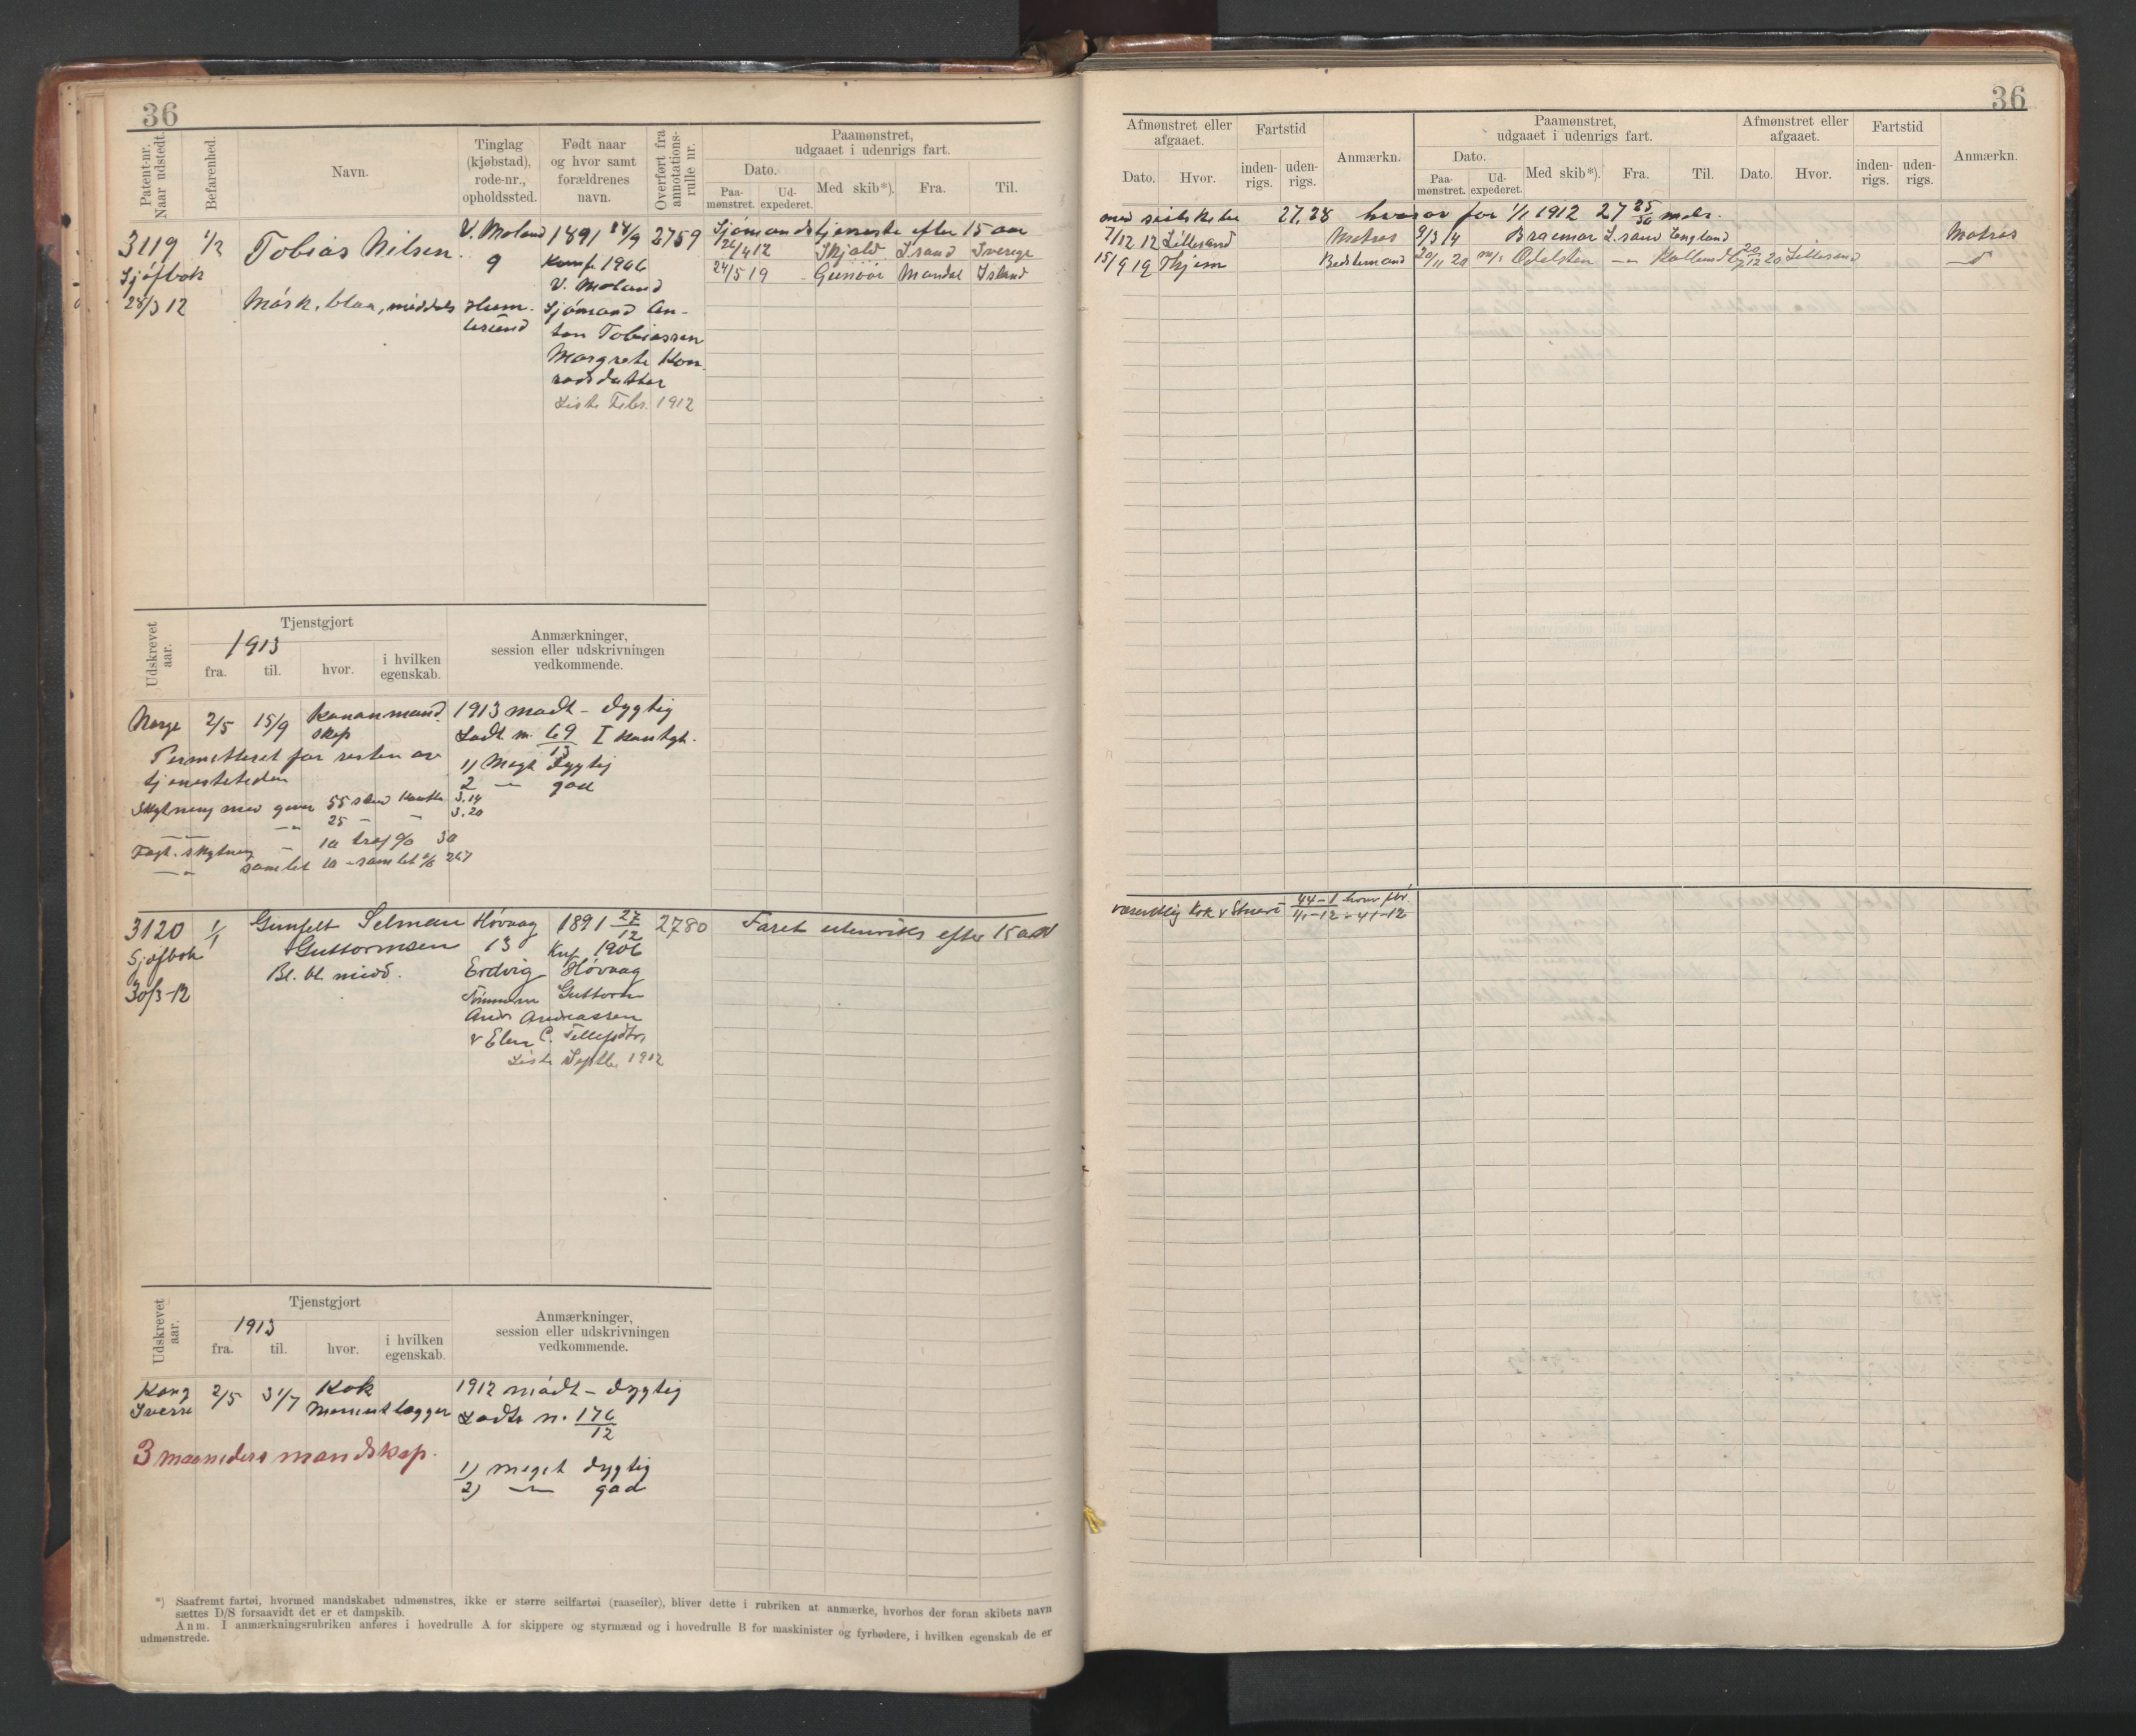 36
Patent-nr.
Naar udstedt.
Befarenhed.
Navn.
Tinglag
(kjøbstad),
rode-nr.,
opholdssted.
Født naar
og hvor samt
forældrenes
navn.
Overført fra
annotations-
rulle nr.
Paamønstret,
udgaaet i udenrigs fart.
Dato.
Paa-
mønstret.
Ud-
expederet.
Med skib*).
Fra.
Til.
3119 1/2 Tobias Nilsen. V. Moland 1891 2759
Sjøfbok
28/3 12
9
Konf. 1906
V. Moland
Mørk, blaa, middels
Sjømand An-
ton Tobiassen
Margrete Kon-
radsdatter
Liste Febr. 1912
Sjømandstjeneste efter 15 aar
26/4 12 Skjold L.sand Sverige
24/5 19 Mandal Island
Udskrevet
aar.
Tjenstgjort
1913
fra.
til.
hvor.
i hvilken
egenskab.
Anmærkninger,
session eller udskrivningen
vedkommende.
Norge 2/5 15/9 Kanonmand
skap
Permitteret for resten av
tjenestetiden
1913 mødt - dygtig
Lodt nr. 69/13 I
1) Meget dygtig
2 — " — god
Skytning med gevær 55 skud 3.14
25 — " — 3.20
skytning — 10 træf % 30
samlet 10 - samlet % 267
3120 1/1 Selman Høvaag 1891 27/12 2780
Guttormsen 13 Knf. 1906
Sjøfbok
30/3-12
Bl. bl. midd.
Høvaag
Tømmerm Guttorm
Andr Andreassen
v Elen C.
Liste Septbr 1912
Faret utenriks efter 15 aar
Udskrevet
aar.
Tjenstgjort
1913
fra.
til.
hvor.
i hvilken
egenskab.
Anmærkninger,
session eller udskrivningen
vedkommende.
Kong
Sverre
2/5 31/7 Kok
3 maaneders mandskap.
1912 mødt - dygtig
Lodtr n. 176/12
1) meget dygtig
2) — " — god
*) Saafremt fartøi, hvormed mandskabet udmønstres, ikke er større seilfartøi (raaseiler), bliver dette i rubriken at anmærke, hvorhos der foran skibets navn
sættes D/S forsaavidt det er et dampskib.
Anm. I anmærkningsrubriken anføres i hovedrulle A for skippere og styrmænd og i hovedrulle B for maskinister og fyrbødere, i hvilken egenskab de er
udmønstrede.
36
Afmønstret eller
afgaaet.
Dato.
Hvor.
Fartstid
inden-
rigs.
uden-
rigs.
Anmærkn.
Paamønstret,
udgaaet i udenrigs fart.
Dato.
Paa-
mønstret.
Ud-
expederet.
Med skib*).
Fra.
Til.
Afmønstret eller
afgaaet.
Dato.
Hvor.
Fartstid
inden-
rigs.
uden-
rigs.
Anmærkn.
27,28 hvorav for 1/1 1912 27 25/30 mdr.
7/12 12 Lillesand Matros 9/3 14 Braemar L.sand England Matros
15/9 19 Hjem Bedstemand 20/11 20 m/s Odelsten — " — 20/12 20 Lillesand
væsentlig Kok & Stuert 44-1 hvorav før
41-12 = 41-12